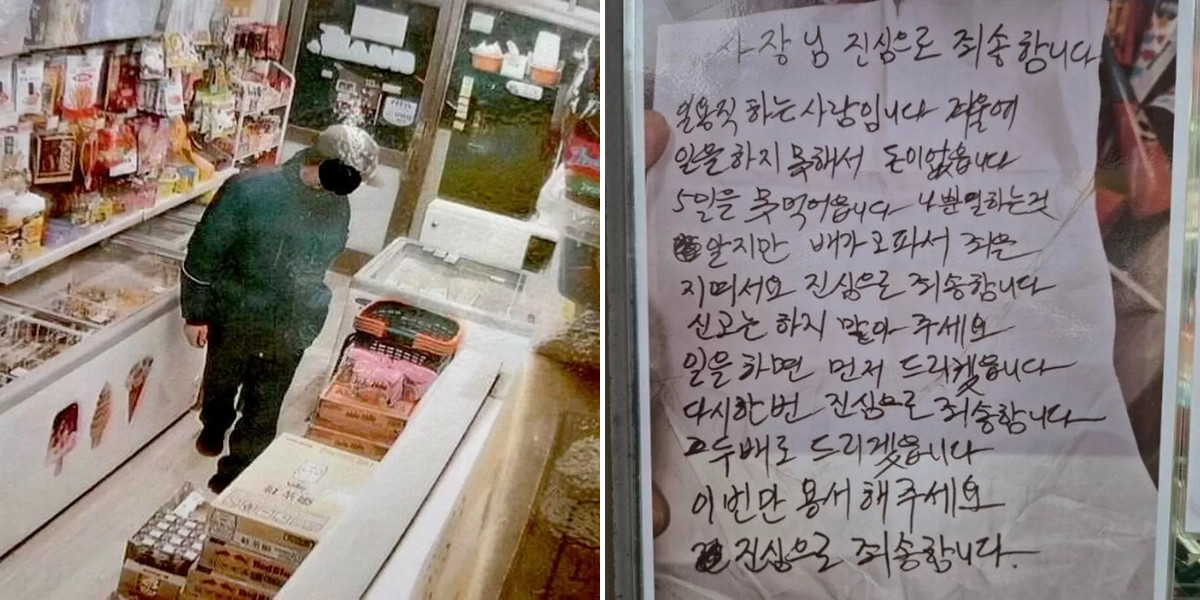 사장님 진심으로 죄송합니다
일용직 하는 사람입니다 겨울에
일을 하지 못해서 돈이 없읍니다
5일을 못 먹어읍니다 나뿐일하는것
알지만 배가 고파서 죄를
지떠서요 진심으로 죄송합니다
신고는 하지 말아 주세요
일을 하면 먼저 드리겠읍니다
다시한번 진심으로 죄송합니다
모두 배로 드리겠읍니다
이번만 용서 해주세요
진심으로 죄송합니다.